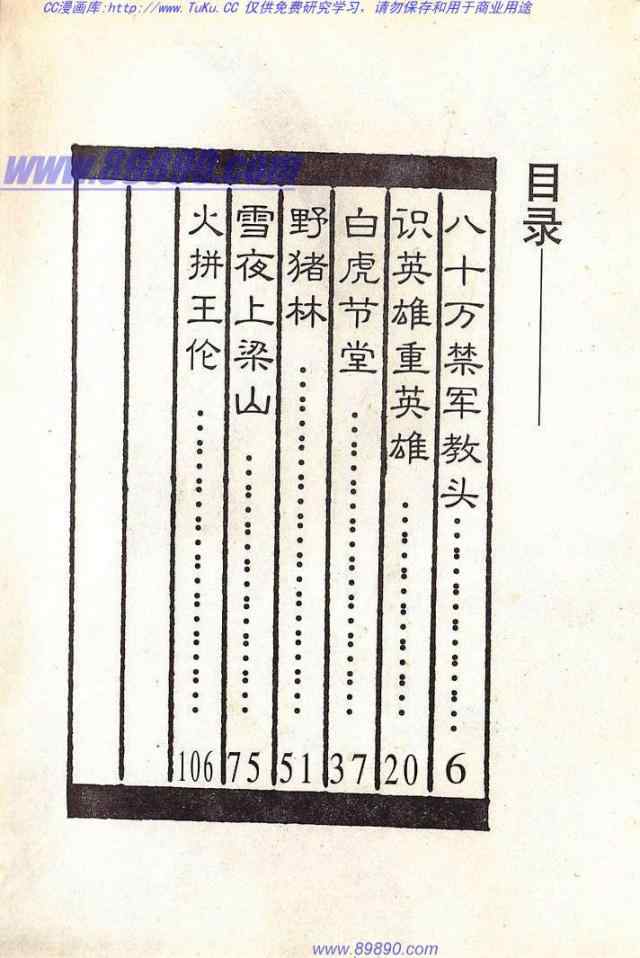 CC漫画库:http://www.TuKu.CC 仅供免费研究学习，请勿保存和用于商业用途
www.89890.com
目录
八十万禁军教头………………6
识英雄重英雄………………20
白虎节堂………………37
野猪林………………51
雪夜上梁山………………75
火拼王伦………………106
www.89890.com